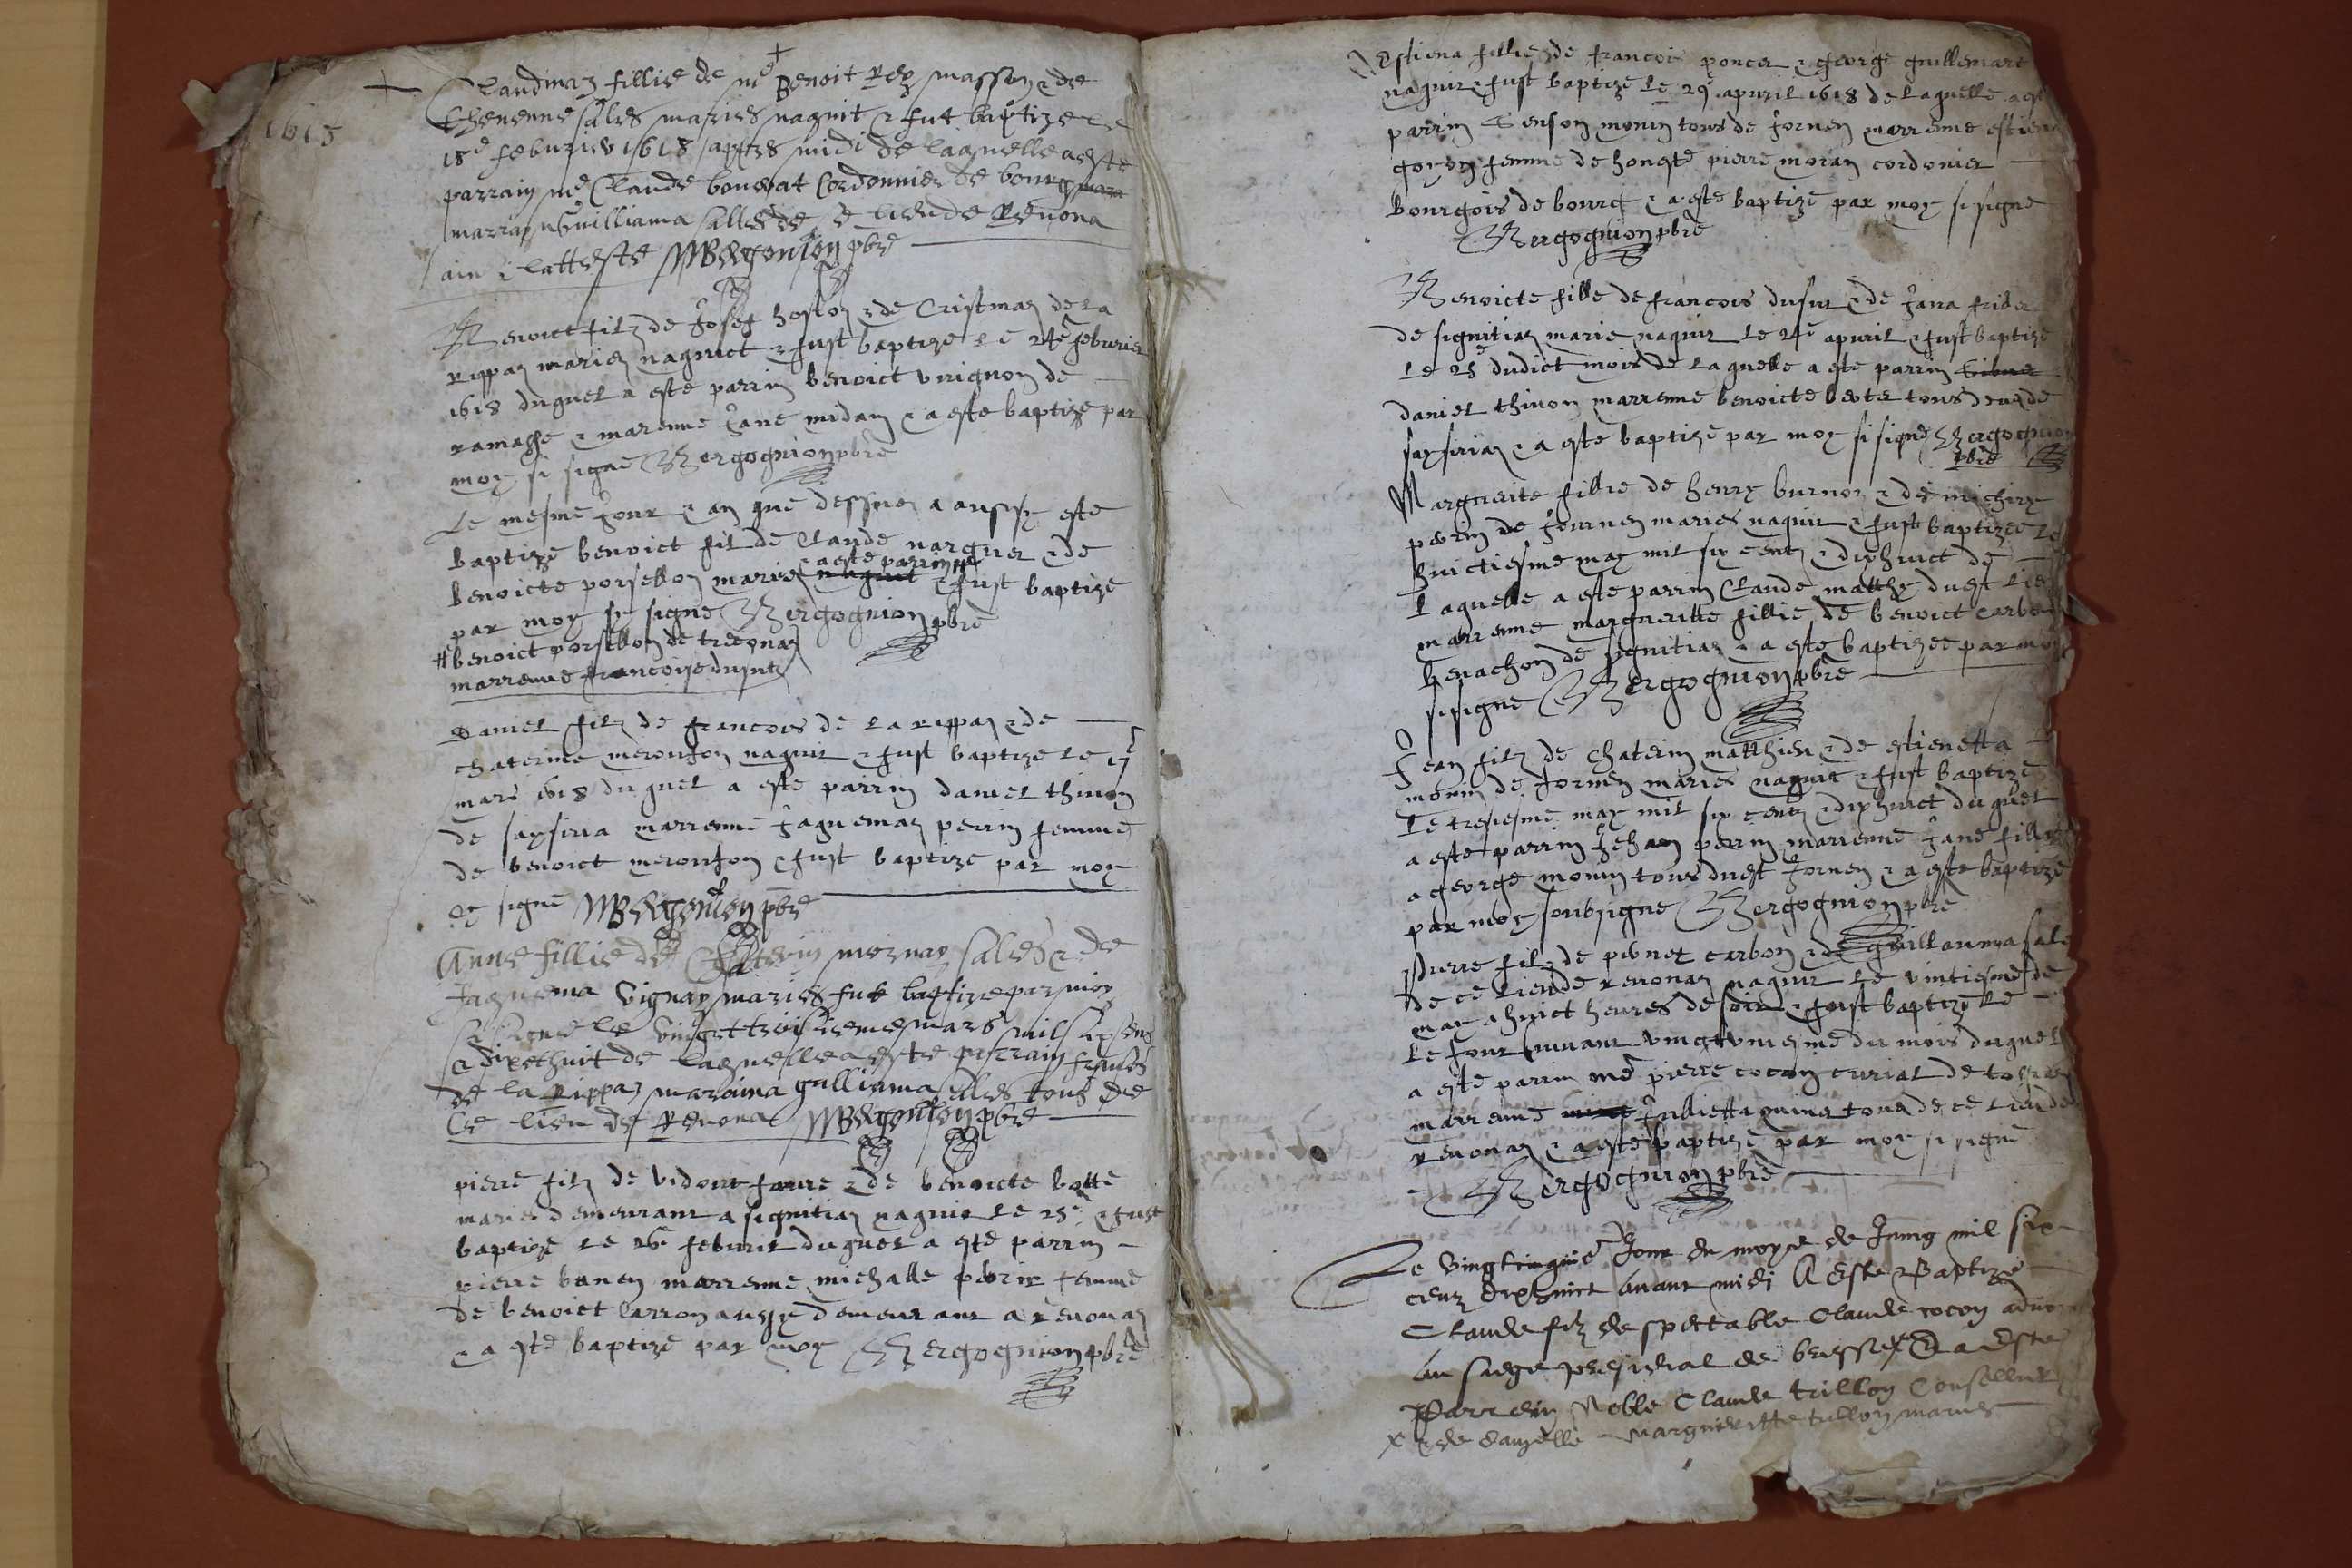 1618
Claudinaz fillie de me Benoit Rey masson & de
Ehenenne sales maries naquit & fut baptize le
18e feburier 1618 apres midi de laquelle a este
parrain me Claude bouvat Cordonnier de bourg
marrayn Guilliama salles de ce lieu de Revona
ain & latteste MBergonion pbre
Benoict filz de Josef hoston & de Cristinaz de la
rippaz maries naquict & fust baptize le 24e feburier
1618 duquel a este parrin benoict vuignon de
ramasse & marenne Jane midan & a este baptize par
moy si signe Bergognion pbre
Le mesme Jour & an que dessuz a aussy este
baptize benoict fil de Claude narquet & de
a este parrin #
benoicte porsellon maries naquit & fust baptize
par moy sy signe Bergognion pbre
# benoict porsellon de treconaz
marrenne francoise dusut
Daniel filz de francois de la rippaz & de
chaterine meronson naquit & fust baptize le 17e
mars 1618 duquel a este parrin daniel thinon
de saysiria marrenne Jaquemaz perrin femme
de benoict meronson & fust baptize par moy
sy signe MBergonion pbre
Anne fillie de Chaterin mornay sales & de
Jaquema Vignay maries fut baptize par moy
le vingt troisieme mars mil six sens
& dixethuit de laquelle a este parrain fransois
de la Rippaz maraina gulliama salles tous de
Ce lieu de Revona MBergonion pbre
pierre filz de vidont favre & de benoicte botte
maries demeurant a signitiaz naquit le 25e & fust
baptize le 26e feburil duquel a este parrin
pierre banen marrenne michalle perrin femme
de benoict Carron aussy demeurant a revonaz
& a este baptize par moy Bergognion pbre
Estiena fillie de francois poncet & george guillemare
naquit & fust baptize le 29 apuril 1618 de laquelle a este
parrin Senson monin tous de Jornen marrenne
goyon femme de honeste pierre moran cordonier
bourgois de bourg & a este baptize par moy si signe
Bergognion pbre
Benoicte fille de francois dusut & de Jana
de signitiaz marie naquit le 24e apuril & fust baptize
le 25 dudict mois de laquelle a este parrin
daniel thinon marrenne benoicte tous deux de
saysiriaz & a este baptize par moy si signe Bergognion
pbre
Marguerite fillie de henry burnon & de michiere
perrin de Journen maries naquit & fust baptizee le
huictiesme may mil six centz & dixhuict de
Laquelle a este parrin Claude matthy dudt lieu
marrenne margueritte fillie de benoict carbon
benachon de signitiaz & a este baptizee par moy
si signe Bergognion pbre
Jean filz de Chaterin matthieu & de estienetta
monin de Jornen maries naquit & fust baptize
le tresiesme may mil six centz & dixhuict duquel
a este parrin Jehan perrin marrenne Jane fillie
a george monin tous dudt Jornen & a este baptize
par moy soubsigne Bergognion pbre
pierre filz de pernet carbon & de guillauma sale
de ce lieu de revonaz naquit le vintiesme de
may a huict heures de soir & fust baptize le
le Jour suivant vingt uniesme du mois duquel
a este parrin me pierre cocon curial de
marrenne Jullietta tous de ce lieu de
revonaz & a este baptize par moy si signe
Bergognion pbre
Le Vingtcinquie Jour du moys de Juing mil six
centz dixhuict avant midi A Este Baptize
Claude filz de spectable Claude cocon advo
au siege presidial de bresse x & a Este
Parrein Noble Claude trillon Conseiller
x & de damzelle Margueritte tillon maries